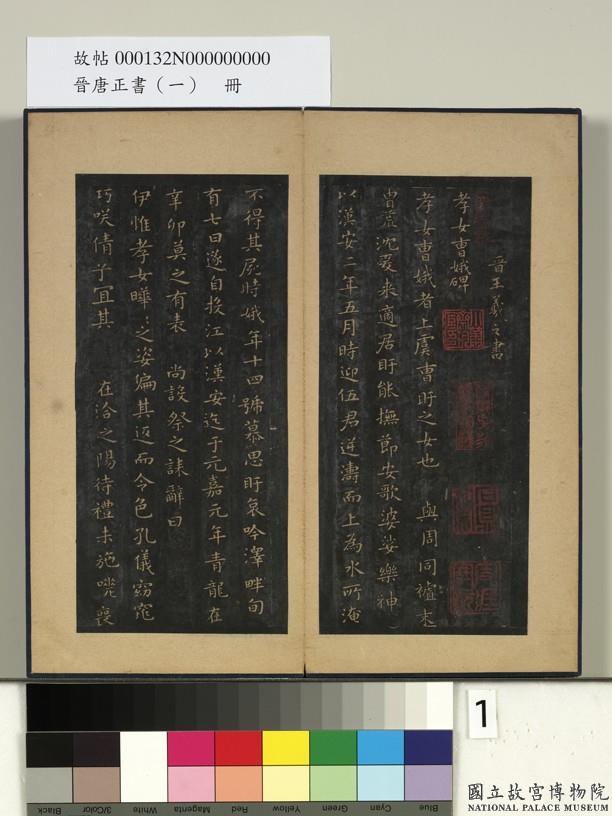 故帖 000132N000000000
晉唐正書（一） 冊
晉王羲之書
孝女曹娥碑
孝女曹娥者上虞曹盱之女也 其先與周同祖末
胄荒沈爰来適居盱能撫節安歌婆娑樂神
以漢安二年五月時迎伍君逆濤而上為水所淹
不得其屍時娥年十四號慕思盱哀吟澤畔旬
有七日遂自投江死經五日抱父屍出以漢安迄于元嘉元年青龍在
辛卯莫之有表 尚設祭之誄辭曰
伊惟孝女曄曄之姿偏其返而令色孔儀窈窕
巧咲倩兮宜其 在洽之陽待禮未施嗟喪
1
Black
3/Color
White
Magenta
Red
Yellow
Green
Cyan
Blue
國立故宮博物院
NATIONAL PALACE MUSEUM